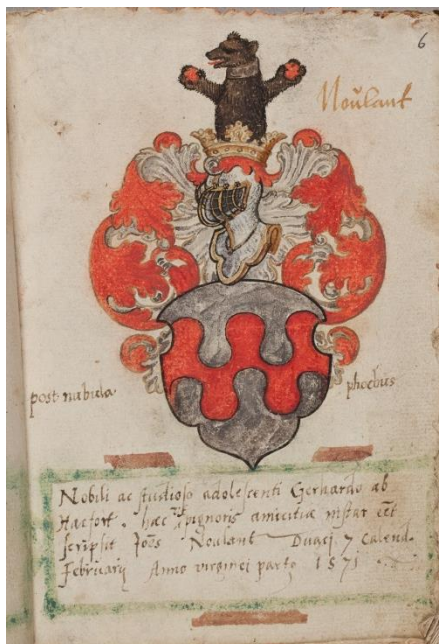 6
Noulant
post nabula
phoebus
Nobili ac studioso adolescenti Gerhardo ab
Haefort. haec pignoris amicitiæ instar
scripsit Joēs Noulant Duaci 7 Calend.
Februarij Anno virginei partq 1571